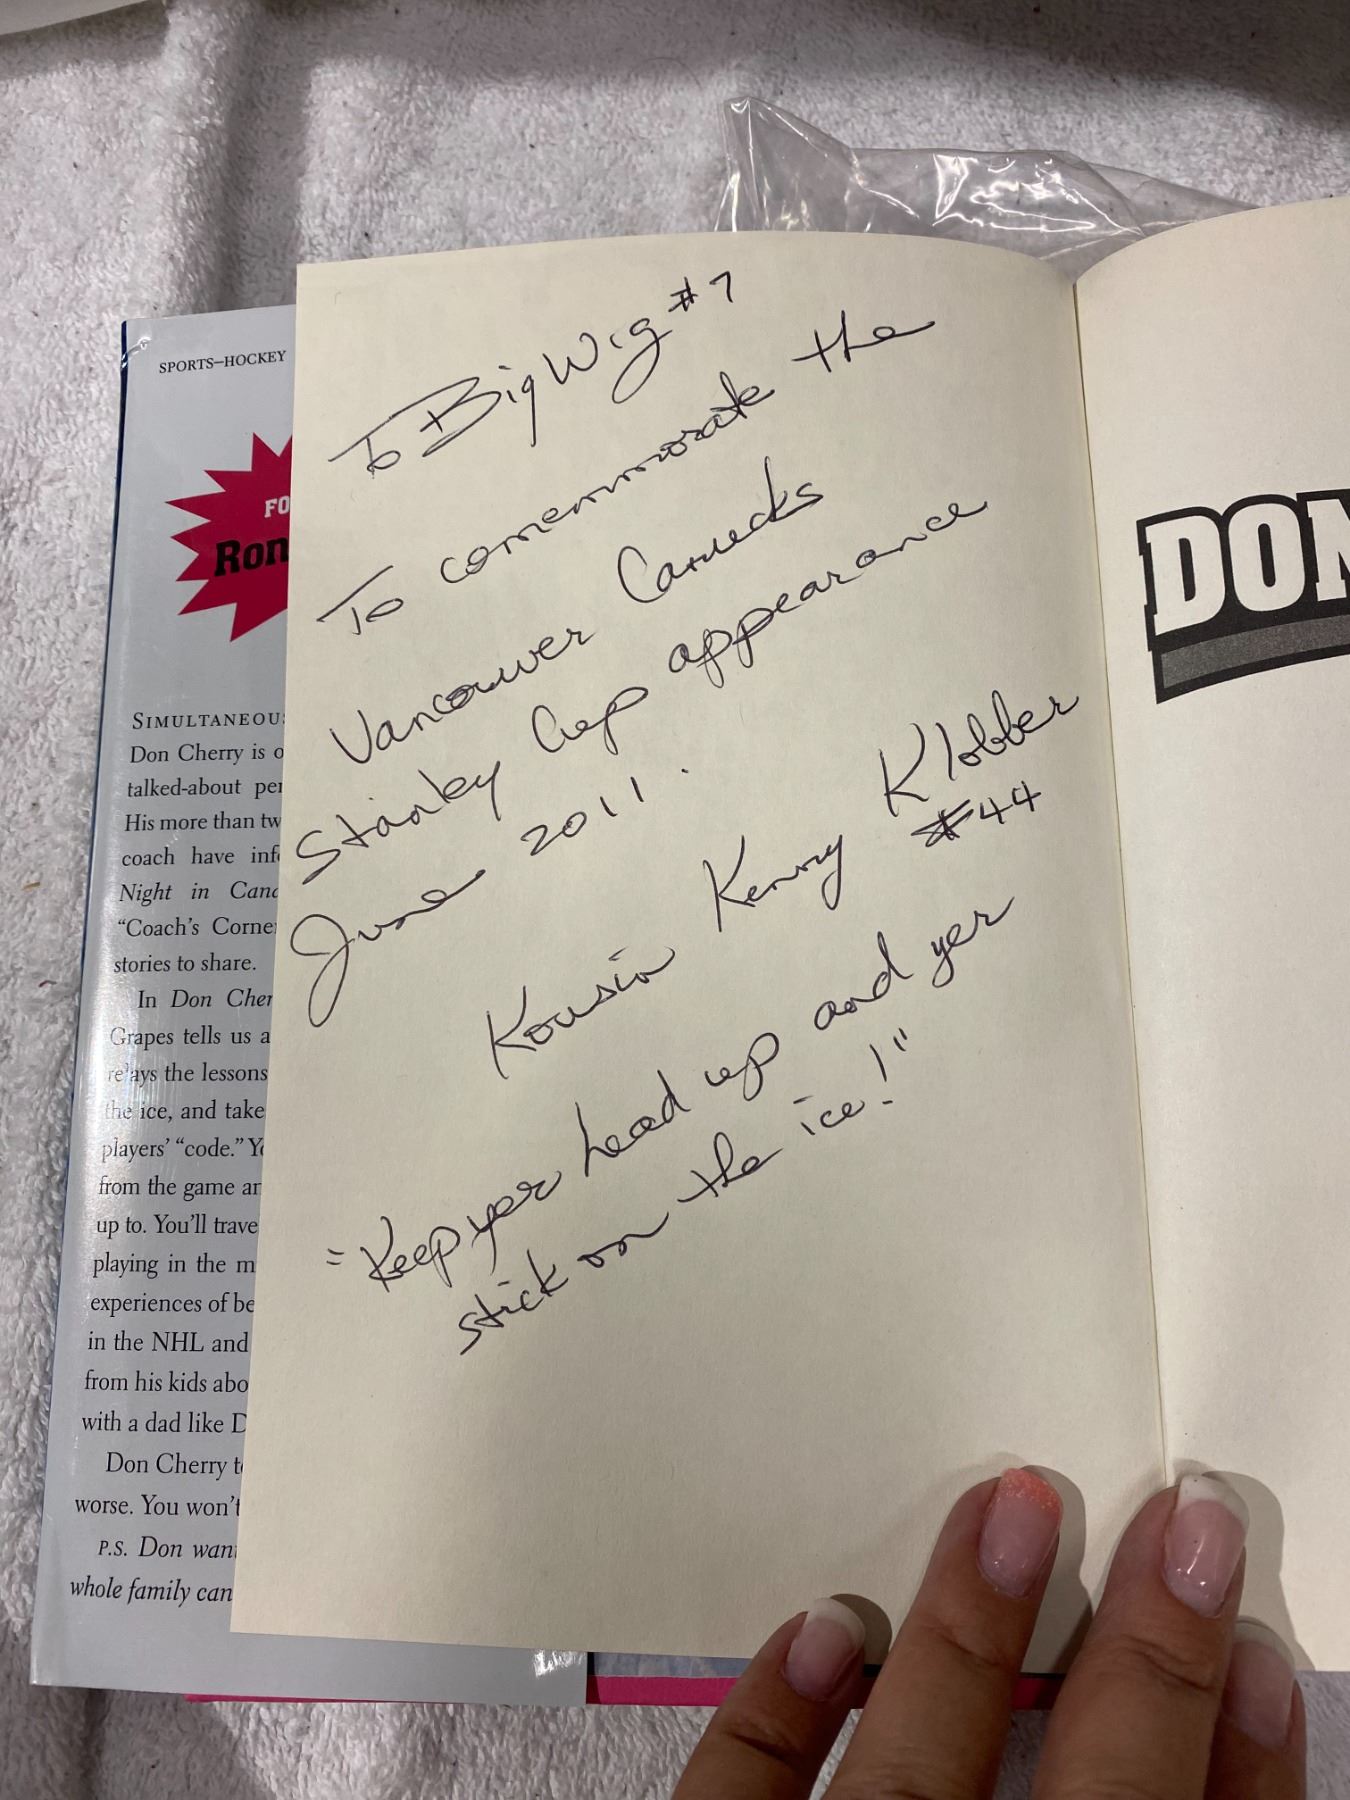 To BigWig #7
To comemmorate the
Vancouver Canucks
Stanley Cup appearance
June 2011.
Kousin Kenny Klobber
#44
"Keep yer head up and yer
stick on the ice!"
SPORTS–HOCKEY
FO
Ron
SIMULTANEOU
Don Cherry is o
talked-about per
His more than tw
coach have inf
Night in Cana
“Coach’s Corne
stories to share.
In Don Cher
Grapes tells us a
relays the lessons
the ice, and take
players’ “code.” Yo
from the game an
up to. You’ll trave
playing in the m
experiences of be
in the NHL and
from his kids abo
with a dad like D
Don Cherry t
worse. You won’t
P.S. Don wan
whole family can
DON